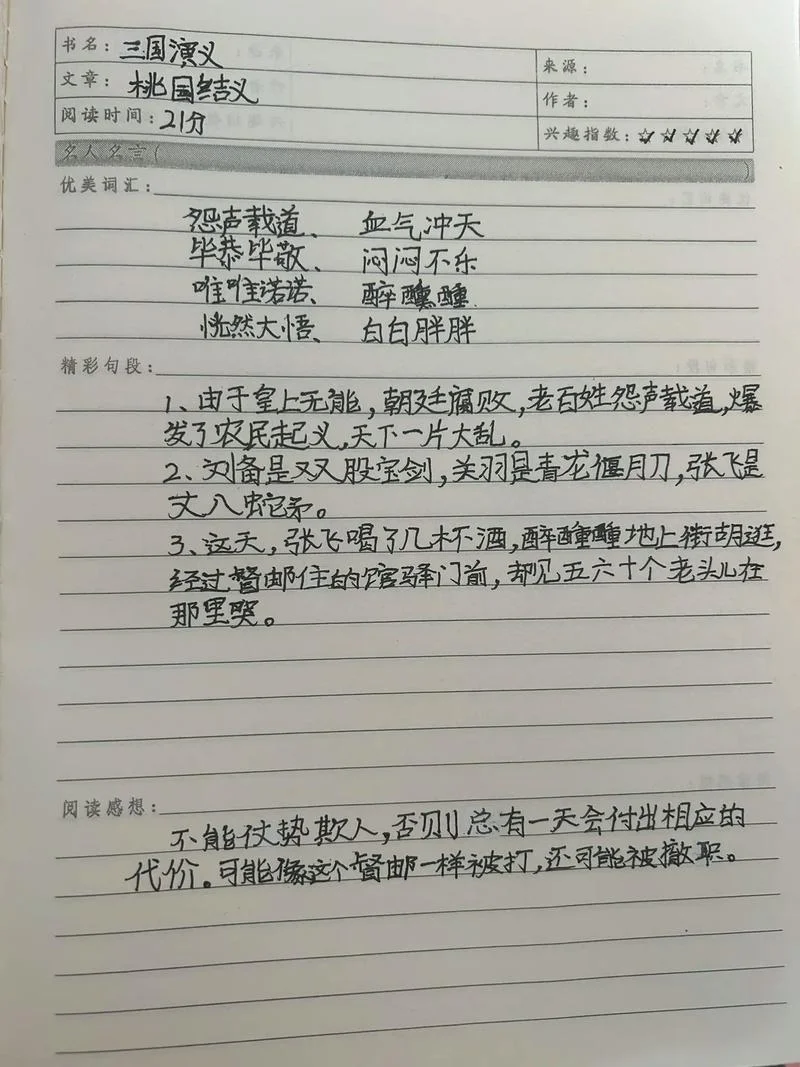 书名：三国演义
来源：
文章：桃园结义
作者：
阅读时间：21分
兴趣指数：☆☆☆☆☆
名人名言（ ）
优美词汇：
怨声载道、 血气冲天
毕恭毕敬、 闷闷不乐
唯唯诺诺、 醉醺醺
恍然大悟、 白白胖胖
精彩句段：
1、由于皇上无能，朝廷腐败，老百姓怨声载道，爆
发了农民起义，天下一片大乱。
2、刘备是双股宝剑，关羽是青龙偃月刀，张飞是
丈八蛇矛。
3、这天，张飞喝了几杯酒，醉醺醺地上街胡逛，
经过督邮住的馆驿门前，却见五六十个老头儿在
那里哭。
阅读感想：
不能仗势欺人，否则总有一天会付出相应的
代价。可能像这个督邮一样被打，还可能被撤职。